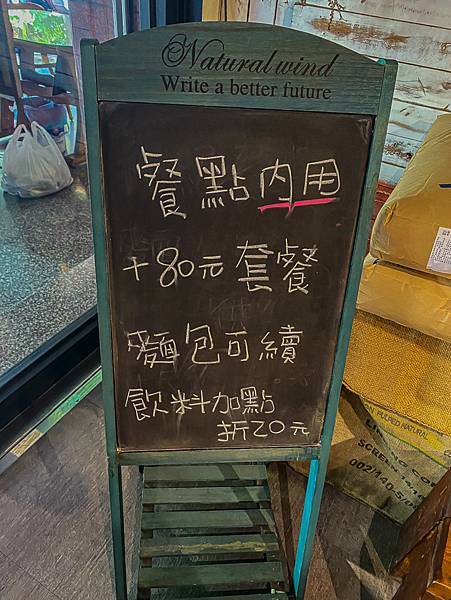 Natural wind
Write a better future
餐點內用
+80元套餐
麵包可續
飲料加點
折20元
PULPED NATURAL
SCREEN 14/16